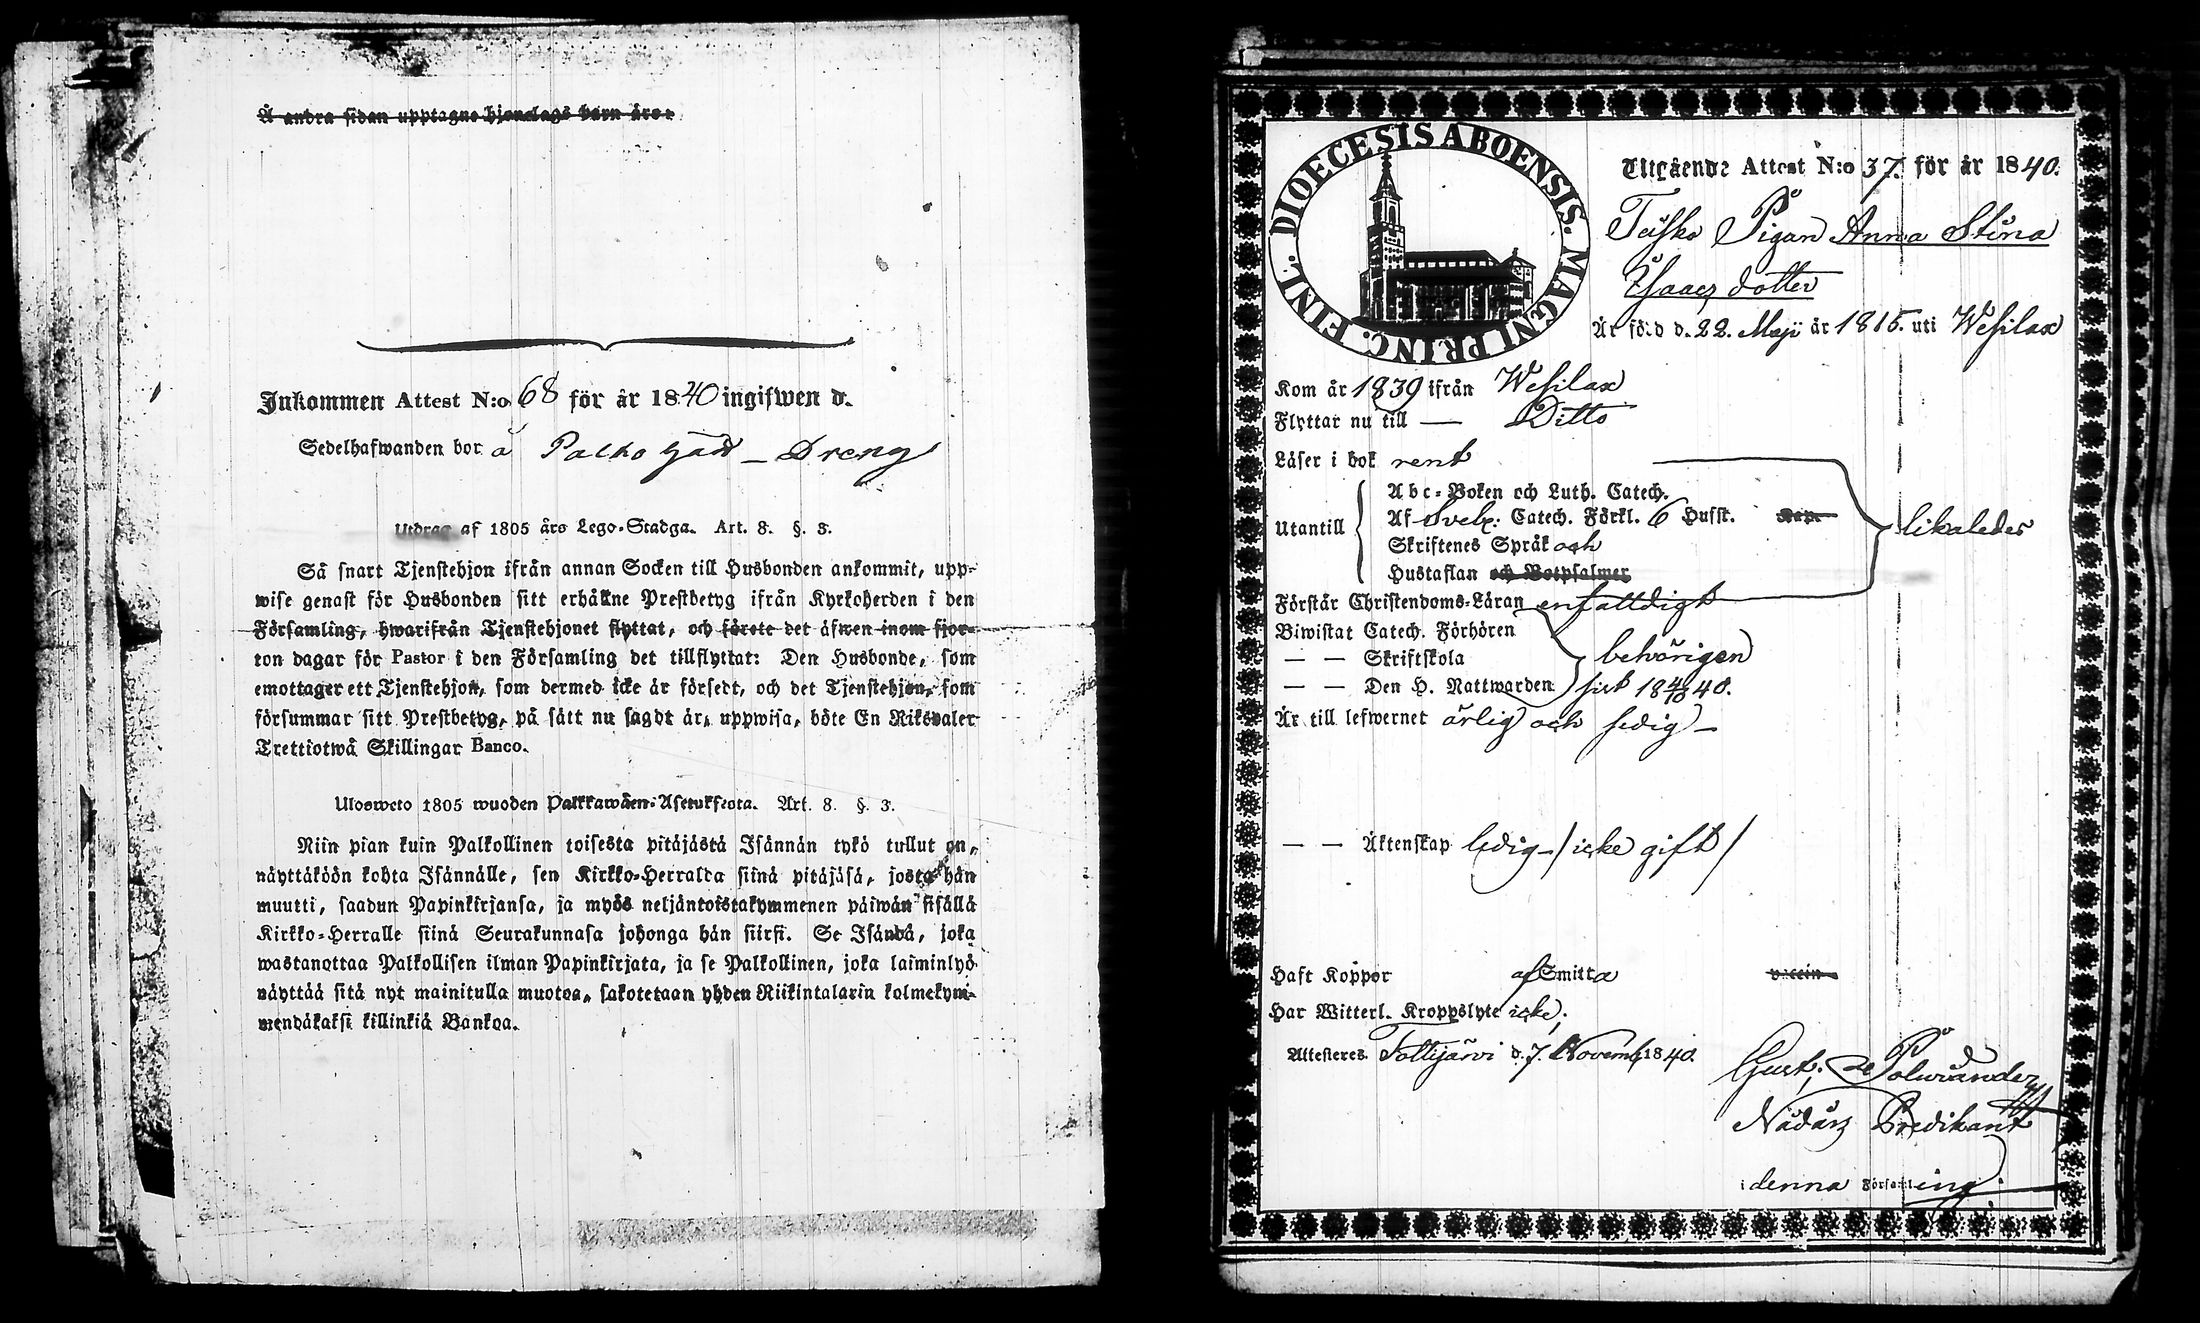 Å andra sidan upptagne hjonelags barn äro:
Inkommen Attest N:o 68 för år 1840 ingifwen d.
Sedelhafwanden bor å Palho gård – Dreng
Utdrag af 1805 års Lego-Stadga. Art. 8. §. 3.
Så snart Tjenstehjon ifrån annan Socken till Husbonden ankommit, upp-
wise genast för Husbonden sitt erhållne Prestbetyg ifrån Kyrkoherden i den
Församling, hwarifrån Tjenstehjonet flyttat, och förete det äfwen inom fjor-
ton dagar för Pastor i den Församling det tillflyttat: Den Husbonde, som
emottager ett Tjenstehjon, som dermed icke är försedt, och det Tjenstehjon, som
försummar sitt Prestbetyg, på sätt nu sagdt är, uppwisa, böte En Riksdaler
Trettiotwå Skillingar Banco.
Ulosweto 1805 wuoden Palkkawäen-Asetuksesta. Art. 8. §. 3.
Niin pian kuin Palkollinen toisesta pitäjästä Isännän tykö tullut on,
näyttäköön kohta Isännälle, sen Kirkko-Herralda siinä pitäjäsä, josta hän
muutti, saadun Papinkirjansa, ja myös neljäntoistakymmenen päiwän sisällä
Kirkko-Herralle siinä Seurakunnasa johonga hän siirsi. Se Isändä, joka
wastanottaa Palkollisen ilman Papinkirjata, ja se Palkollinen, joka laiminlyö
näyttää sitä nyt mainitulla muotoa, sakotetaan yhden Riikintalarin kolmekym-
mendäkaksi killinkiä Bankoa.
DIOECESIS ABOENSIS. MAGNI PRINC. FINL.
Utgående Attest N:o 37. för år 1840.
Pigan Anna Stina
Isaacs dotter
Är född d. 22. Maji år 1815. uti Wesilax
Kom år 1839 ifrån Wesilax
Flyttar nu till — Ditto
Läser i bok rent
Utantill
Abc-Boken och Luth. Catech.
Af Sveb: Catech. Förkl. 6 Hufst. Kap.
Skriftenes Språk och
Hustaflan och Botpsalmer
likaledes
Förstår Christendoms-Läran enfaldigt
Biwistat Catech. Förhören
— — Skriftskola behörigen
— — Den H. Nattwarden sist 18 4/10 40.
Är till lefwernet ärlig och sedig –
— — Äktenskap ledig – / icke gift /
Haft Koppor af Smitta vaccin
Har Witterl. Kroppslyte icke;
Attesteras Tottijärvi d. 7. Novemb. 1840.
Gust: Polwiander
Nådårs Predikant
i denna Församling.